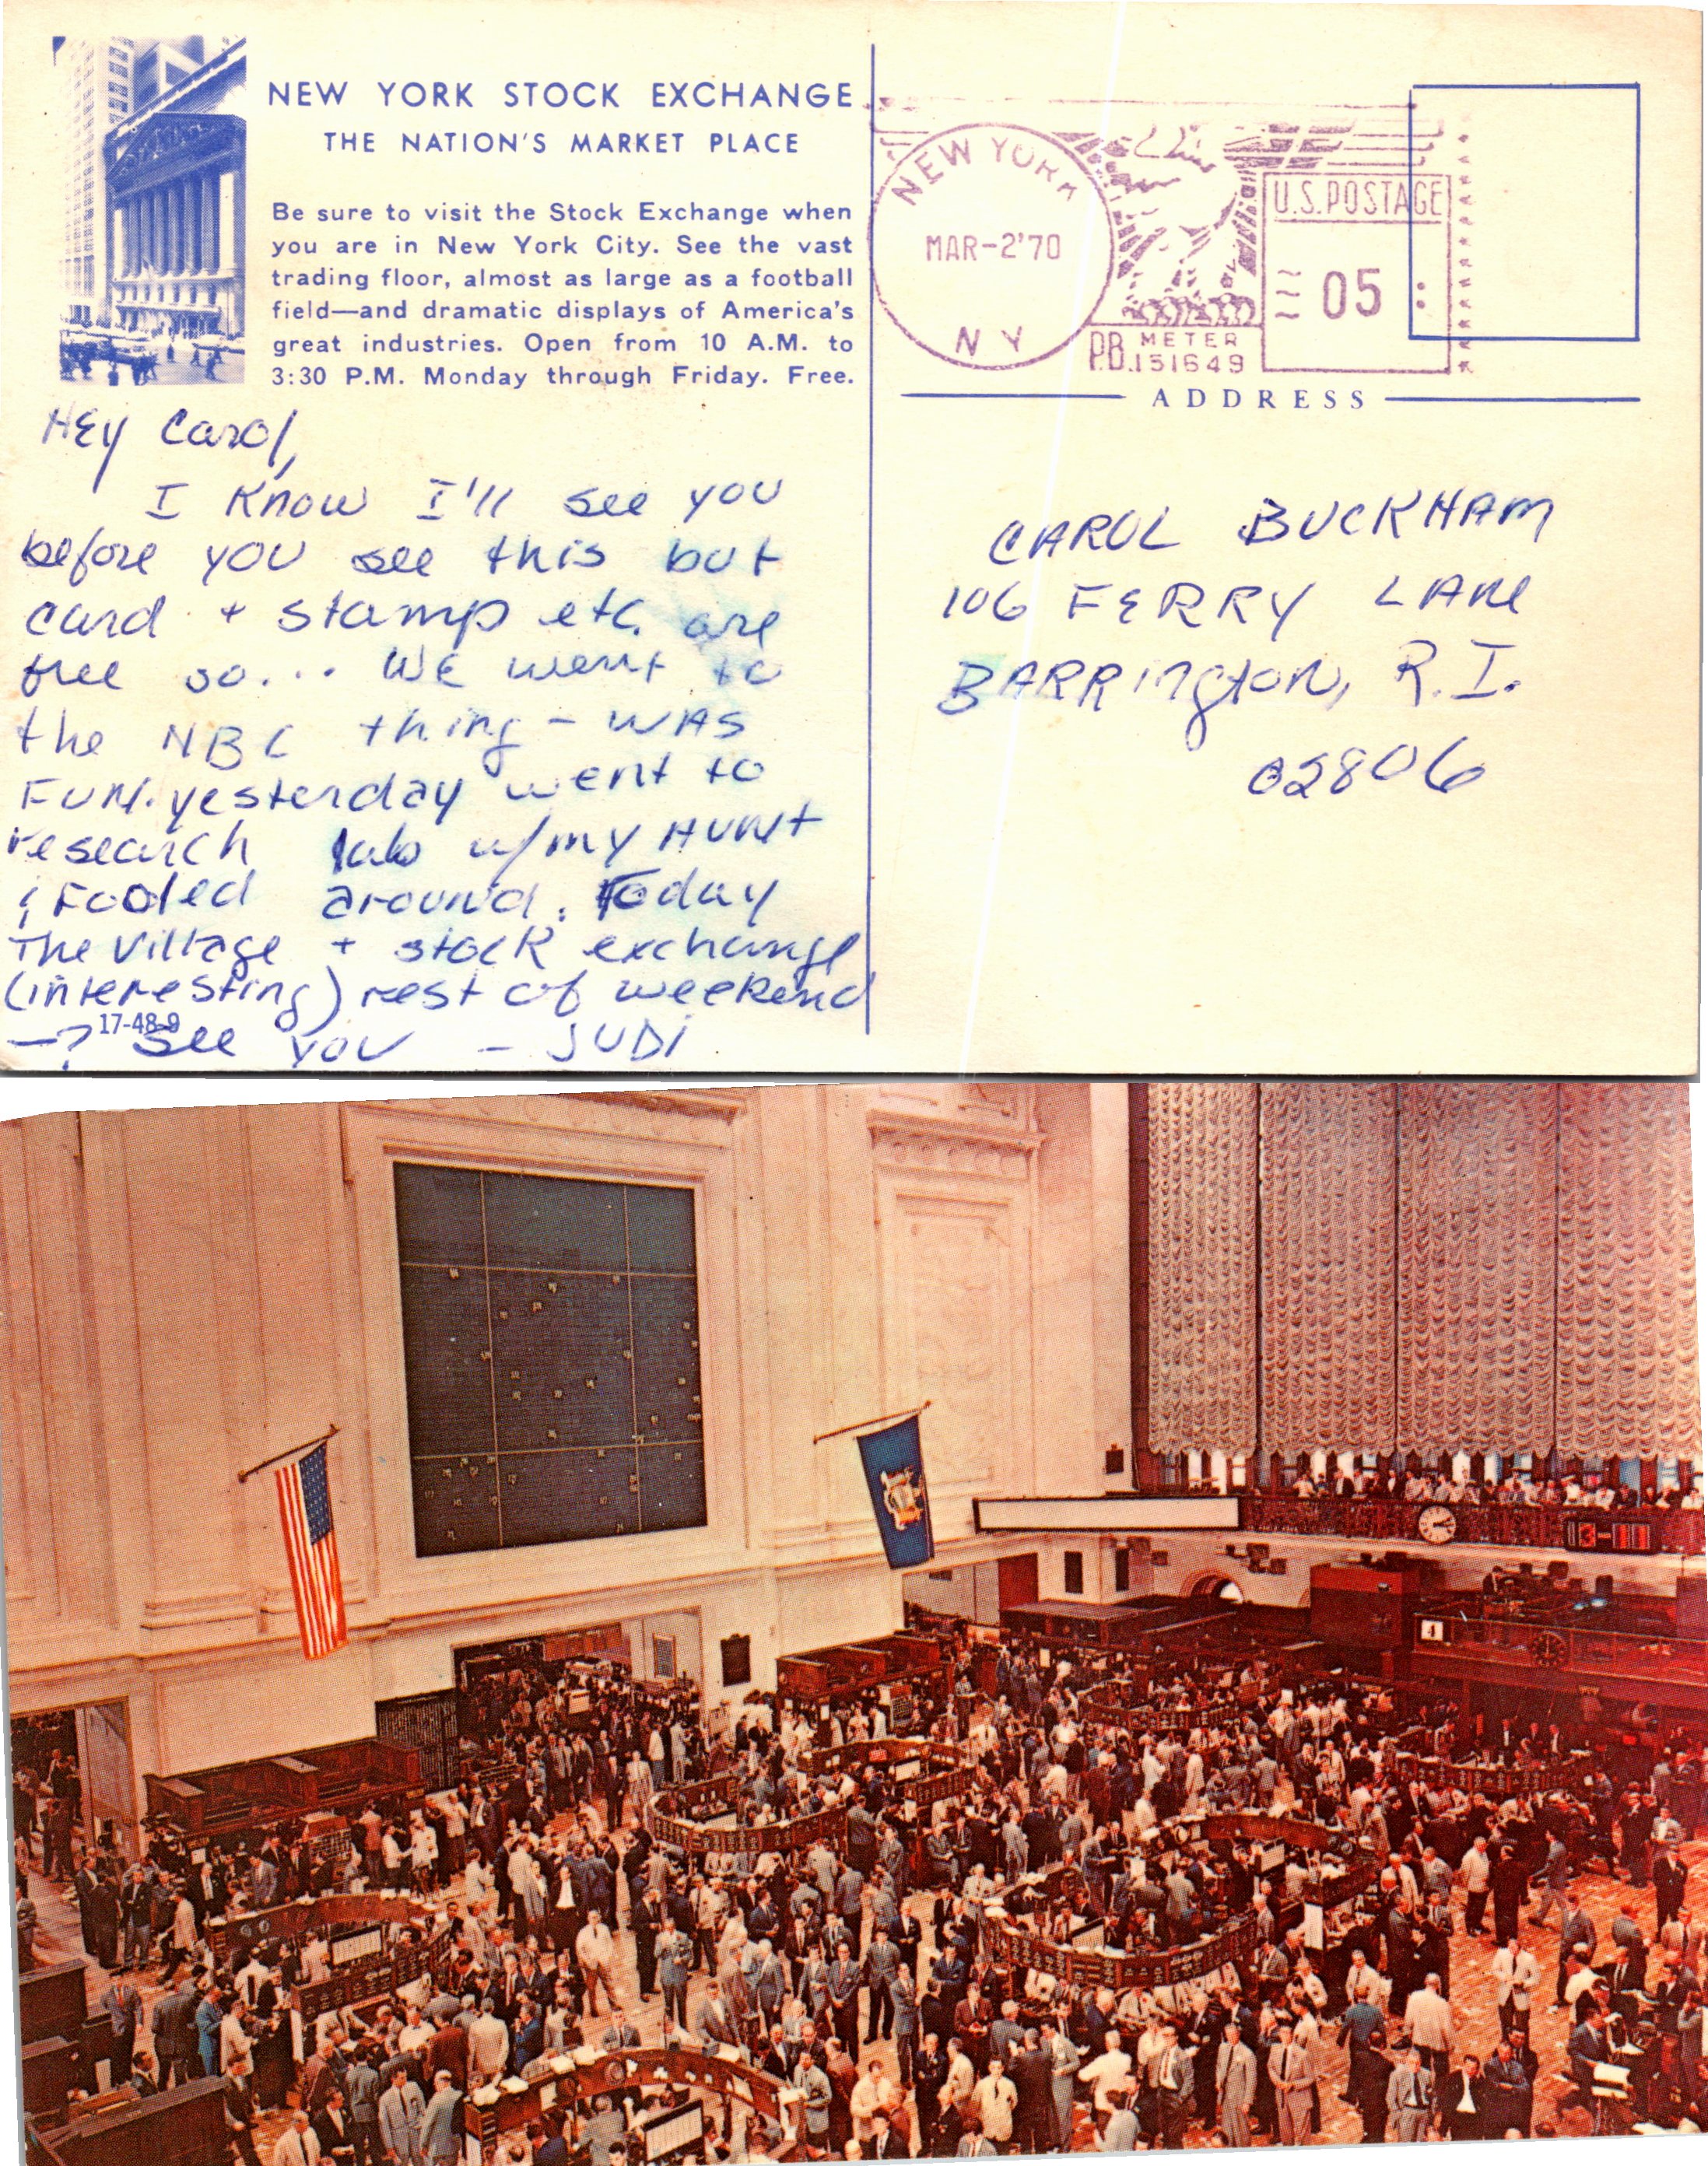 NEW YORK STOCK EXCHANGE
THE NATION'S MARKET PLACE
Be sure to visit the Stock Exchange when
you are in New York City. See the vast
trading floor, almost as large as a football
field—and dramatic displays of America's
great industries. Open from 10 A.M. to
3:30 P.M. Monday through Friday. Free.
Hey Carol,
I know I'll see you
before you see this but
card + stamp etc. are
free so... We went to
the NBC thing - was
Fun. yesterday went to
research lab w/my Aunt
& Fooled around. Today
The Village + stock exchange
(interesting) rest of weekend
—? See you - JUDi
17-48-9
NEW YORK
MAR-2'70
NY
U.S. POSTAGE
05
P.B. METER
151649
ADDRESS
CAROL BUCKHAM
106 FERRY LANE
BARRington, R.I.
02806
4